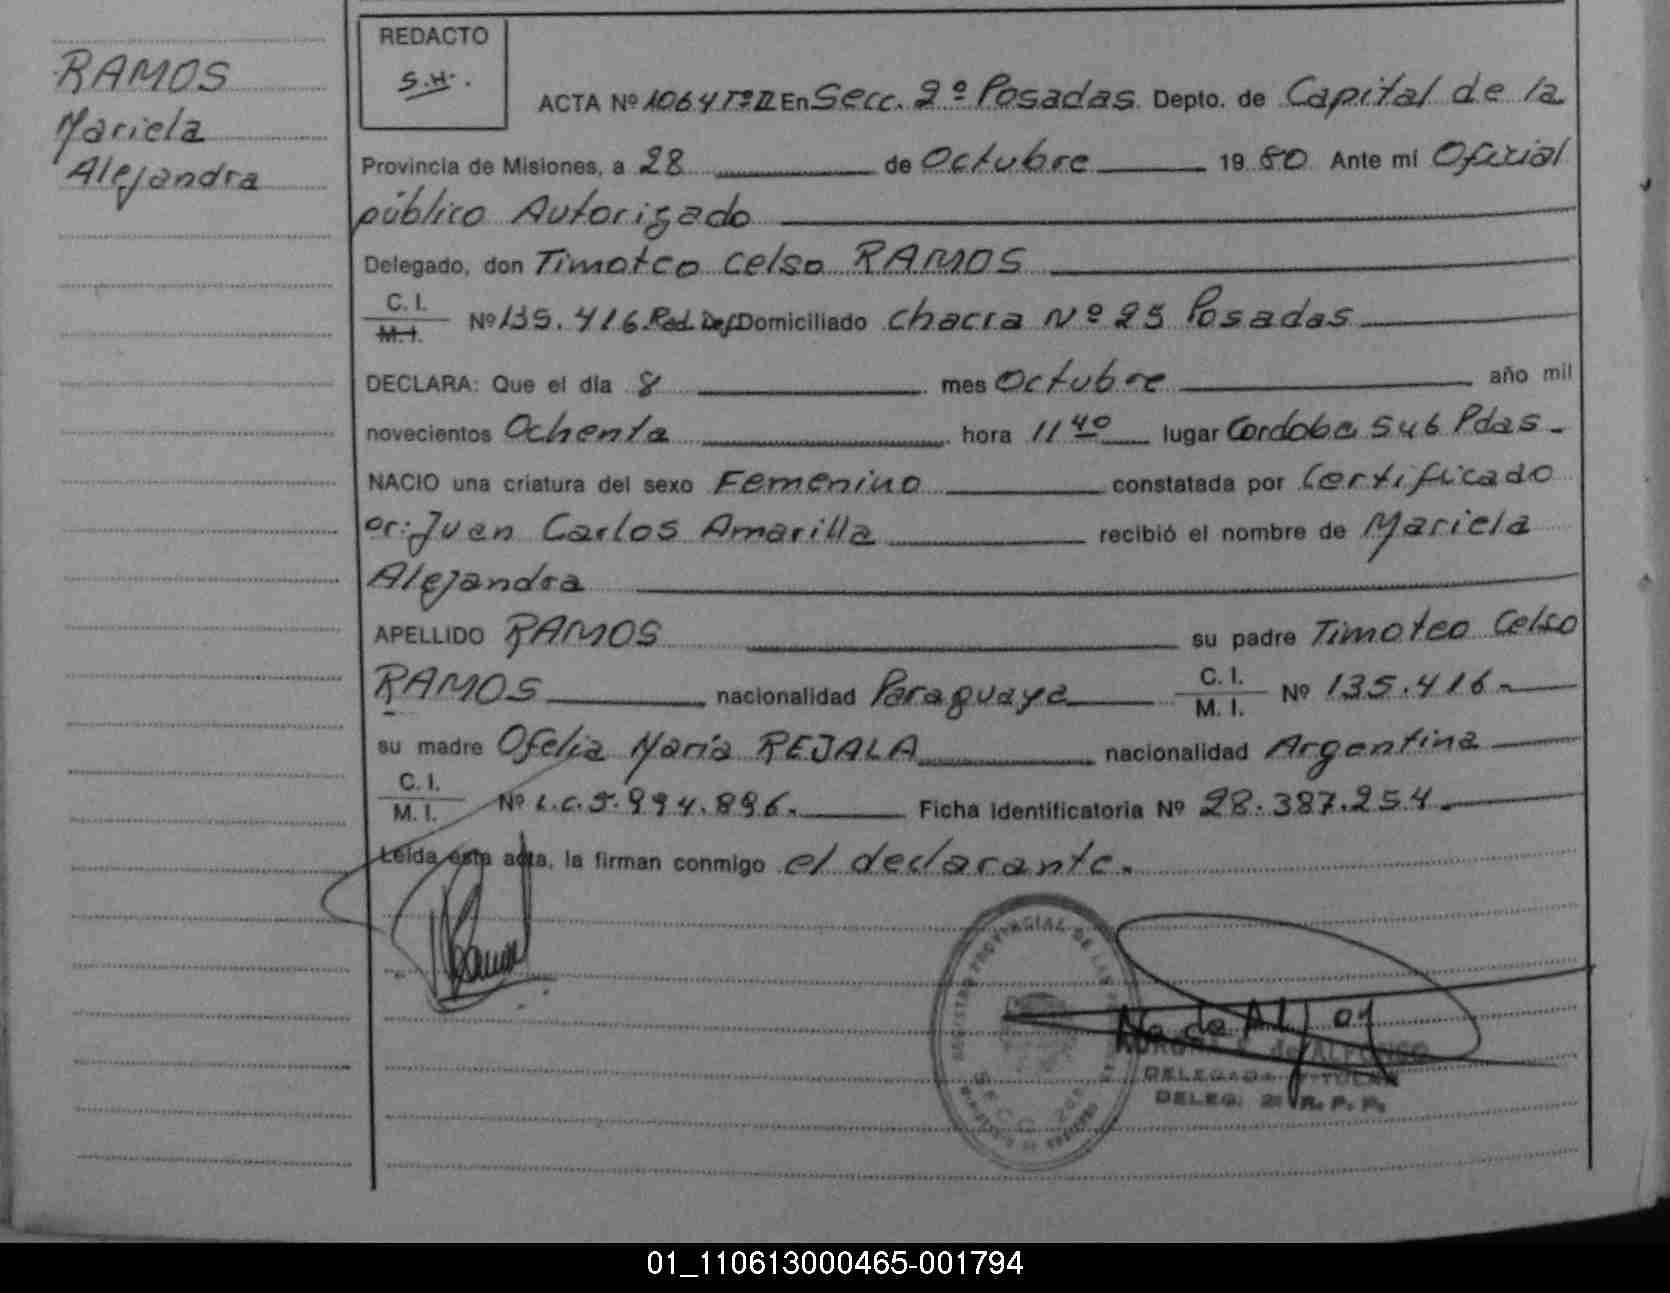 RAMOS
Mariela
Alejandra
REDACTO
S.H.
ACTA Nº 1064 Tº II En Secc. 2º Posadas Depto. de Capital de la
Provincia de Misiones, a 28 de Octubre 19 80 Ante mi Oficial
público Autorizado
Delegado, don Timoteo Celso RAMOS
C. I.
M. I. Nº 135.416 Rad. Def Domiciliado chacra Nº 25 Posadas
DECLARA: Que el día 8 mes Octubre año mil
novecientos Ochenta hora 11 40 lugar Cordoba 546 Pdas.
NACIO una criatura del sexo Femenino constatada por Certificado
Dr: Juan Carlos Amarilla recibió el nombre de Mariela
Alejandra
APELLIDO RAMOS su padre Timoteo Celso
RAMOS nacionalidad Paraguaya C. I. M. I. Nº 135.416.
su madre Ofelia María REJALA nacionalidad Argentina
C. I.
M. I. Nº L.C. 5.994.896. Ficha Identificatoria Nº 28.387.254.
Leida esta acta, la firman conmigo el declarante.
REGISTRO PROVINCIAL DE LAS
SECC. 2da
de ALFONSO
DELEGADA TITULAR
DELEG. 2ª R. P. P.
01_110613000465-001794